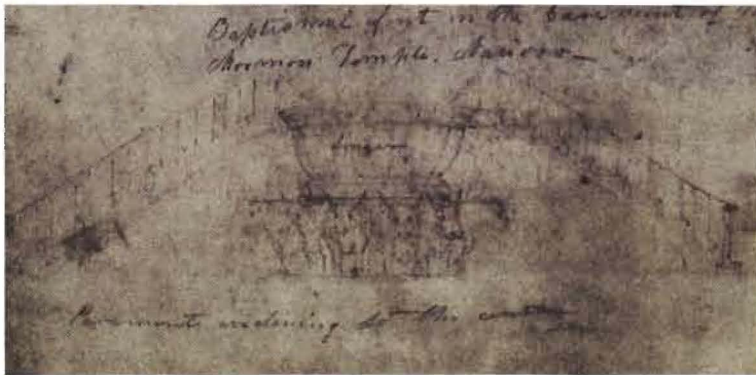 Baptismal font in the basement of
Mormon Temple, Nauvoo
longer
Pavement inclining to the center